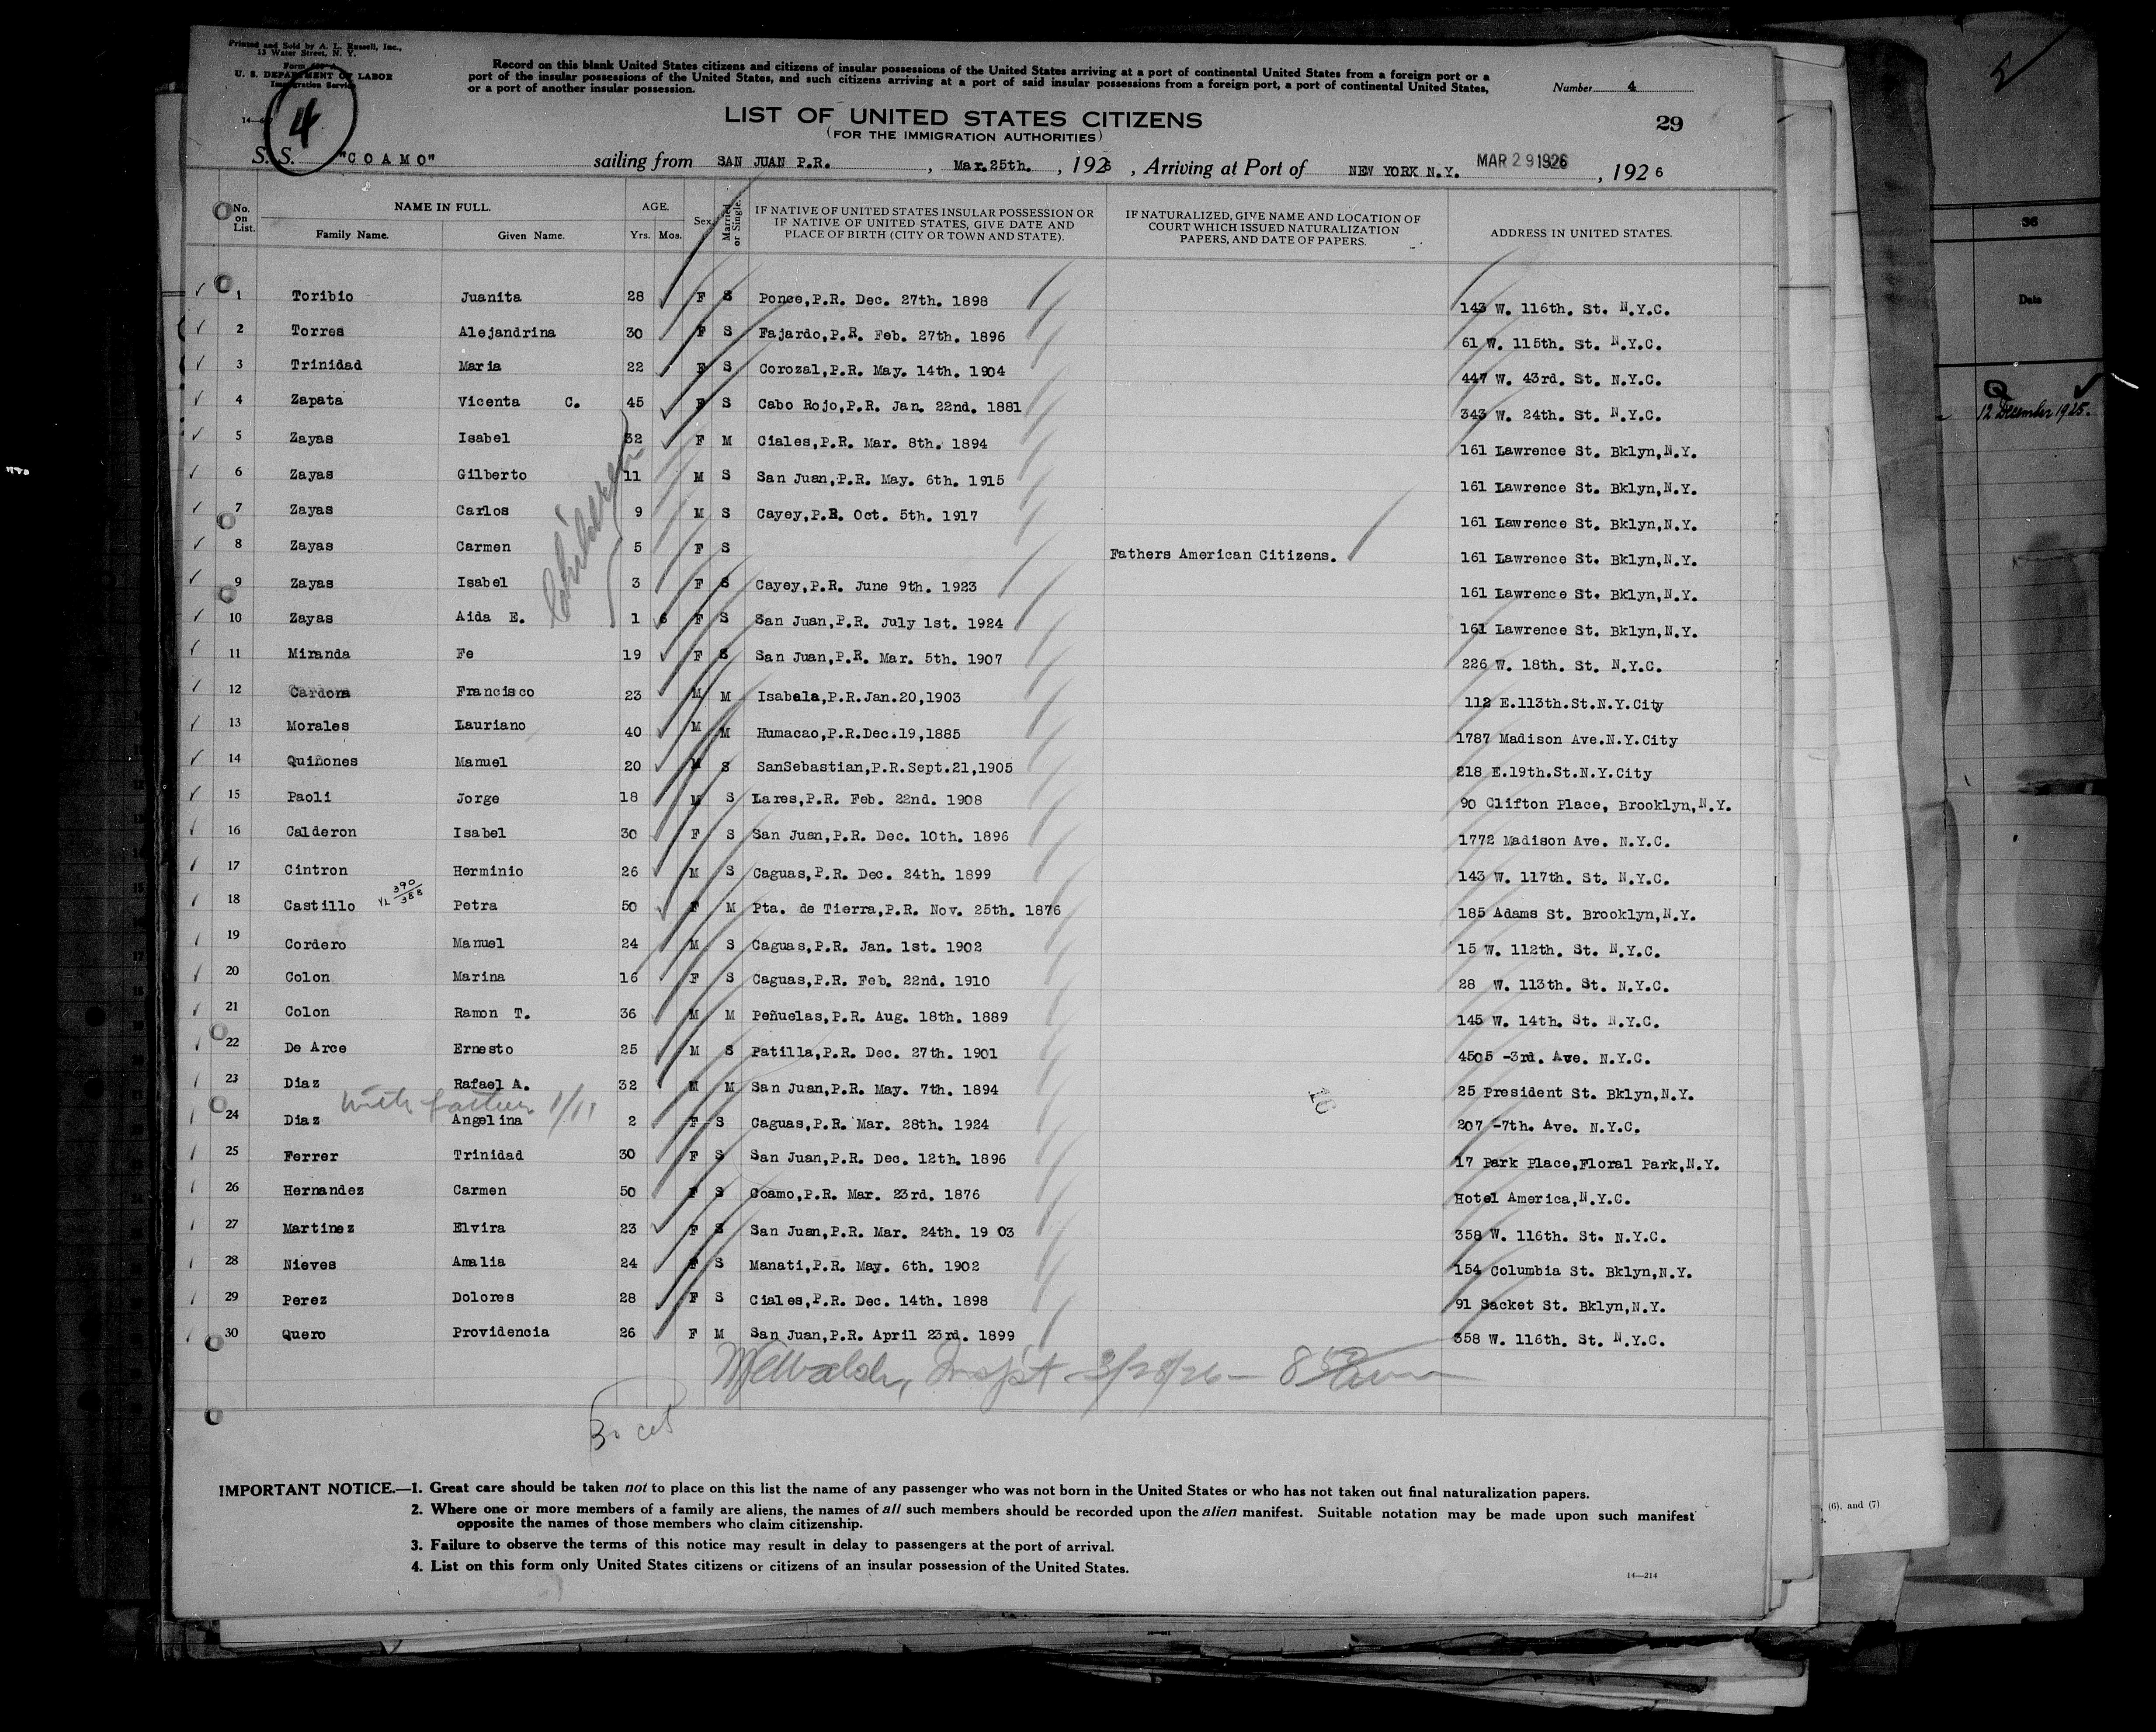 Printed and Sold by A. L. Russell, Inc.,
13 Water Street, N. Y.
Form A
U. S. DEPARTMENT OF LABOR
Immigration Service
4
Record on this blank United States citizens and citizens of insular possessions of the United States arriving at a port of continental United States from a foreign port or a
port of the insular possessions of the United States, and such citizens arriving at a port of said insular possessions from a foreign port, a port of continental United States,
or a port of another insular possession.
Number 4
LIST OF UNITED STATES CITIZENS
(FOR THE IMMIGRATION AUTHORITIES)
29
S. S. "COAMO" sailing from SAN JUAN P.R. , Mar.25th. , 1926 , Arriving at Port of NEW YORK N.Y. MAR 29 1926 , 1926
No. on List. NAME IN FULL. Family Name. Given Name. AGE. Yrs. Mos. Sex Married or Single. IF NATIVE OF UNITED STATES INSULAR POSSESSION OR IF NATIVE OF UNITED STATES, GIVE DATE AND PLACE OF BIRTH (CITY OR TOWN AND STATE). IF NATURALIZED, GIVE NAME AND LOCATION OF COURT WHICH ISSUED NATURALIZATION PAPERS, AND DATE OF PAPERS. ADDRESS IN UNITED STATES.
1 Toribio Juanita 28 F S Ponce,P.R. Dec. 27th. 1898 143 W. 116th. St. N.Y.C.
2 Torres Alejandrina 30 F S Fajardo,P.R. Feb. 27th. 1896 61 W. 115th. St. N.Y.C.
3 Trinidad Maria 22 F S Corozal,P.R. May. 14th. 1904 447 W. 43rd. St. N.Y.C.
4 Zapata Vicenta C. 45 F S Cabo Rojo,P.R. Jan. 22nd. 1881 343 W. 24th. St. N.Y.C.
5 Zayas Isabel 32 F M Ciales,P.R. Mar. 8th. 1894 161 Lawrence St. Bklyn,N.Y.
6 Zayas Gilberto 11 M S San Juan,P.R. May. 6th. 1915 161 Lawrence St. Bklyn,N.Y.
7 Zayas Carlos 9 M S Cayey,P.R. Oct. 5th. 1917 161 Lawrence St. Bklyn,N.Y.
8 Zayas Carmen 5 F S Fathers American Citizens. 161 Lawrence St. Bklyn,N.Y.
9 Zayas Isabel 3 F S Cayey,P.R. June 9th. 1923 161 Lawrence St. Bklyn,N.Y.
10 Zayas Aida E. 1 6 F S San Juan,P.R. July 1st. 1924 161 Lawrence St. Bklyn,N.Y.
children
11 Miranda Fe 19 F S San Juan,P.R. Mar. 5th. 1907 226 W. 18th. St. N.Y.C.
12 Cardona Francisco 23 M M Isabela,P.R.Jan.20,1903 112 E.113th.St.N.Y.City
13 Morales Lauriano 40 M M Humacao,P.R.Dec.19,1885 1787 Madison Ave.N.Y.City
14 Quiñones Manuel 20 M S SanSebastian,P.R.Sept.21,1905 218 E.19th.St.N.Y.City
15 Paoli Jorge 18 M S Lares,P.R. Feb. 22nd. 1908 90 Clifton Place, Brooklyn,N.Y.
16 Calderon Isabel 30 F S San Juan,P.R. Dec. 10th. 1896 1772 Madison Ave. N.Y.C.
17 Cintron Herminio 26 M S Caguas,P.R. Dec. 24th. 1899 143 W. 117th. St. N.Y.C.
18 Castillo VL 390/388 Petra 50 F M Pta. de Tierra,P.R. Nov. 25th. 1876 185 Adams St. Brooklyn,N.Y.
19 Cordero Manuel 24 M S Caguas,P.R. Jan. 1st. 1902 15 W. 112th. St. N.Y.C.
20 Colon Marina 16 F S Caguas,P.R. Feb. 22nd. 1910 28 W. 113th. St. N.Y.C.
21 Colon Ramon T. 36 M M Peñuelas,P.R. Aug. 18th. 1889 145 W. 14th. St. N.Y.C.
22 De Arce Ernesto 25 M S Patilla,P.R. Dec. 27th. 1901 4505 -3rd. Ave. N.Y.C.
23 Diaz Rafael A. 32 M M San Juan,P.R. May. 7th. 1894 25 President St. Bklyn,N.Y.
with father 1/11
24 Diaz Angelina 2 F S Caguas,P.R. Mar. 28th. 1924 207 -7th. Ave. N.Y.C.
25 Ferrer Trinidad 30 F S San Juan,P.R. Dec. 12th. 1896 17 Park Place,Floral Park,N.Y.
26 Hernandez Carmen 50 F S Coamo,P.R. Mar. 23rd. 1876 Hotel America,N.Y.C.
27 Martinez Elvira 23 F S San Juan,P.R. Mar. 24th. 19 03 358 W. 116th. St. N.Y.C.
28 Nieves Amalia 24 F S Manati,P.R. May. 6th. 1902 154 Columbia St. Bklyn,N.Y.
29 Perez Dolores 28 F S Ciales,P.R. Dec. 14th. 1898 91 Sacket St. Bklyn,N.Y.
30 Quero Providencia 26 F M San Juan,P.R. April 23rd. 1899 358 W. 116th. St. N.Y.C.
Insp't 3/28/26
30
IMPORTANT NOTICE.—1. Great care should be taken not to place on this list the name of any passenger who was not born in the United States or who has not taken out final naturalization papers.
2. Where one or more members of a family are aliens, the names of all such members should be recorded upon the alien manifest. Suitable notation may be made upon such manifest
opposite the names of those members who claim citizenship.
3. Failure to observe the terms of this notice may result in delay to passengers at the port of arrival.
4. List on this form only United States citizens or citizens of an insular possession of the United States.
14—214
36
Date
Q
12 December 1925.
(6), and (7)